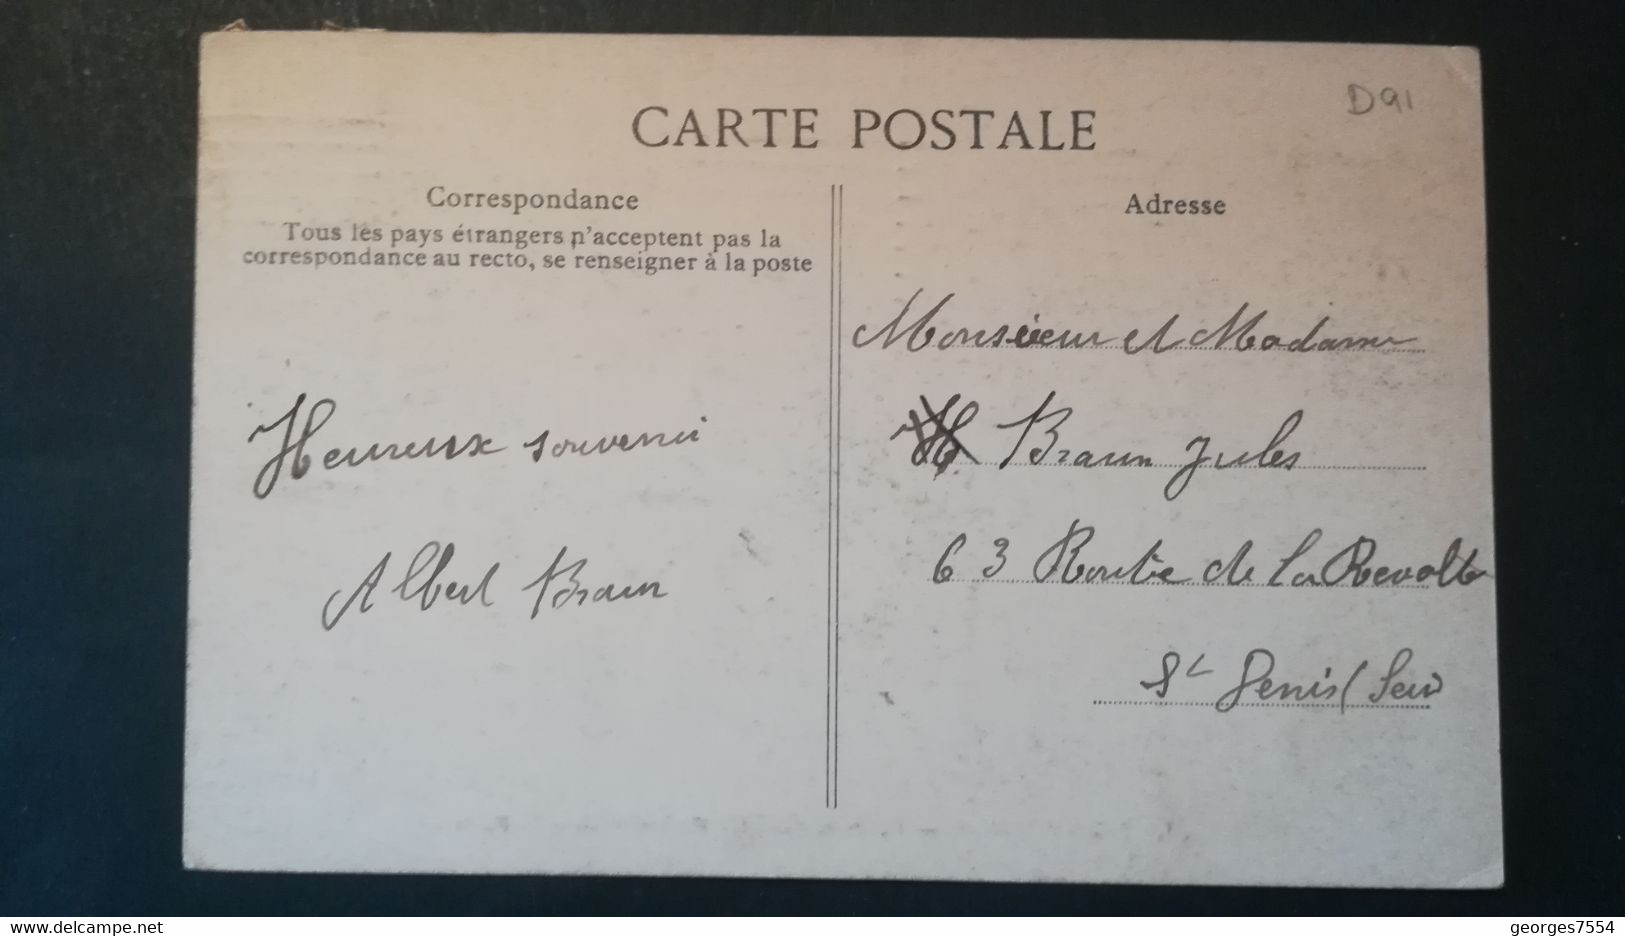 D91
CARTE POSTALE
Correspondance
Tous les pays étrangers n'acceptent pas la
correspondance au recto, se renseigner à la poste
Heureux souvenir
Albert Braun
Adresse
Monsieur et Madame
Braun Jules
63 Route de la Revolte
St Denis (Seine
georges7554